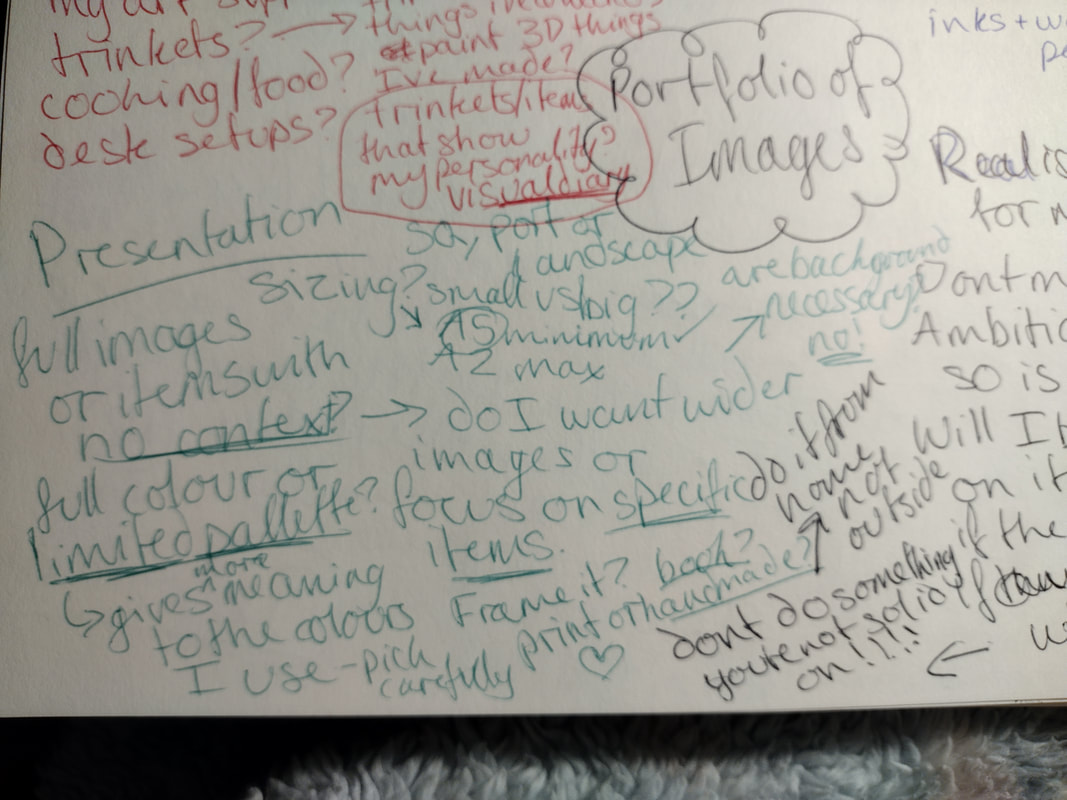 my art
trinkets? → things
paint 3D things
I've made?
cooking/food?
desk setups?
trinkets/items
that show
my personality?
visual diary
Portfolio of
Images
inks + w
pe
Realis
for m
Dont m
Ambitio
so is
Will I b
on it
Presentation
sizing?
sq, port or
landscape
small vs big ??
A5 minimum
A2 max
are background
necessary?
no!
full images
or items with
no context? → do I want wider
images or
focus on specific
items.
full colour or
limited pallette?
↳ gives more meaning
to the colours
I use - pick
carefully
Frame it? book?
print or handmade?
♡
do it from
home, not
outside
dont do something if the
you're not solid
on!!!!
←